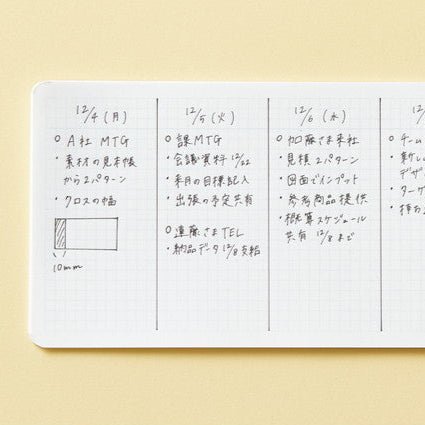 12/4 (月)
○ A社 MTG
・素材の見本帳
から2パターン
・クロスの幅
10mm
12/5 (火)
○ 課MTG
・会議資料 12/22
・来月の目標記入
・出張の予定共有
○ 遠藤さまTEL
・納品データ 12/8 支給
12/6 (水)
○ 加藤さま来社
・見積 2パターン
・図面でインプット
・参考商品提供
・概算スケジュール
共有 12/8 まで
12/
○ チーム
・新しい
デザ
・ターゲ